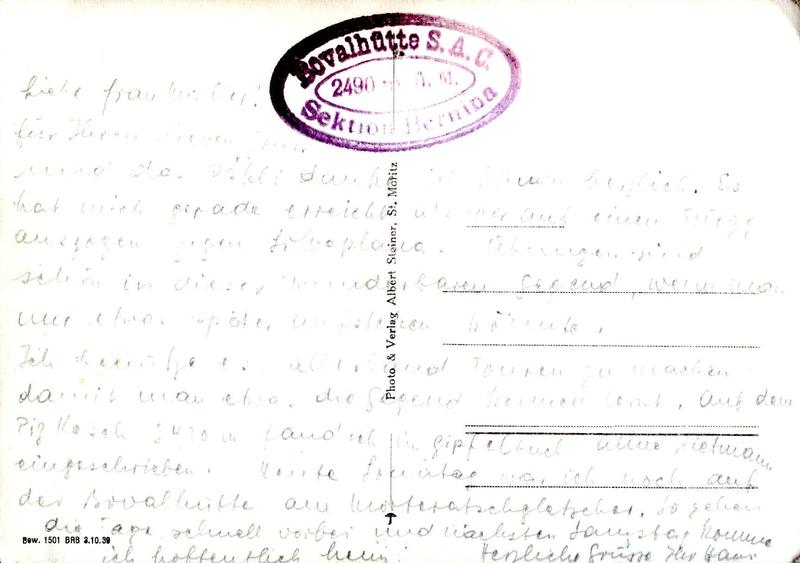 Bovalhütte S.A.C.
2490 m ü. M.
Sektion Bernina
Liebe Frau
für Ihren
und das danke ich Ihnen herzlich. Es
hat mich gerade erreicht als wir auf einen
auszogen gegen Silvaplana. Übungen sind
schön in dieser wunderbaren Gegend, wenn man
nur etwas später aufstehen könnte.
Ich benutze es allerhand Touren zu machen
damit man etwas die Gegend kennen lernt. Auf dem
Piz Kesch 3420 m fand ich im Gipfelbuch
eingeschrieben. Heute Sonntag war ich noch auf
der Bovalhütte am Morteratschgletscher. So gehen
die Tage schnell vorbei und nächsten Samstag komme
ich hoffentlich heim. Herzliche Grüsse Ihr Hans
Photo. & Verlag Albert Steiner, St. Moritz
Bew. 1501 BRB 3.10.39